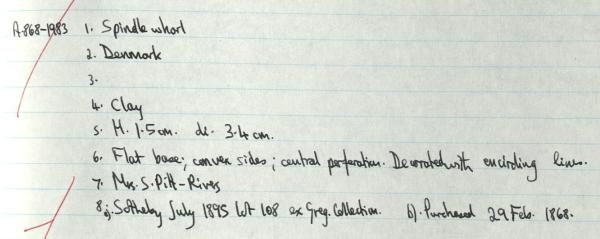 A.868-1983 1. Spindle whorl
2. Denmark
3.
4. Clay
5. H. 1.5cm. di. 3.4cm.
6. Flat base; convex sides; central perforation. Decorated with encircling lines.
7. Mrs. S. Pitt-Rivers
8. a). Sotheby July 1895 Lot 108 ex Greg. Collection. b). Purchased 29 Feb. 1868.